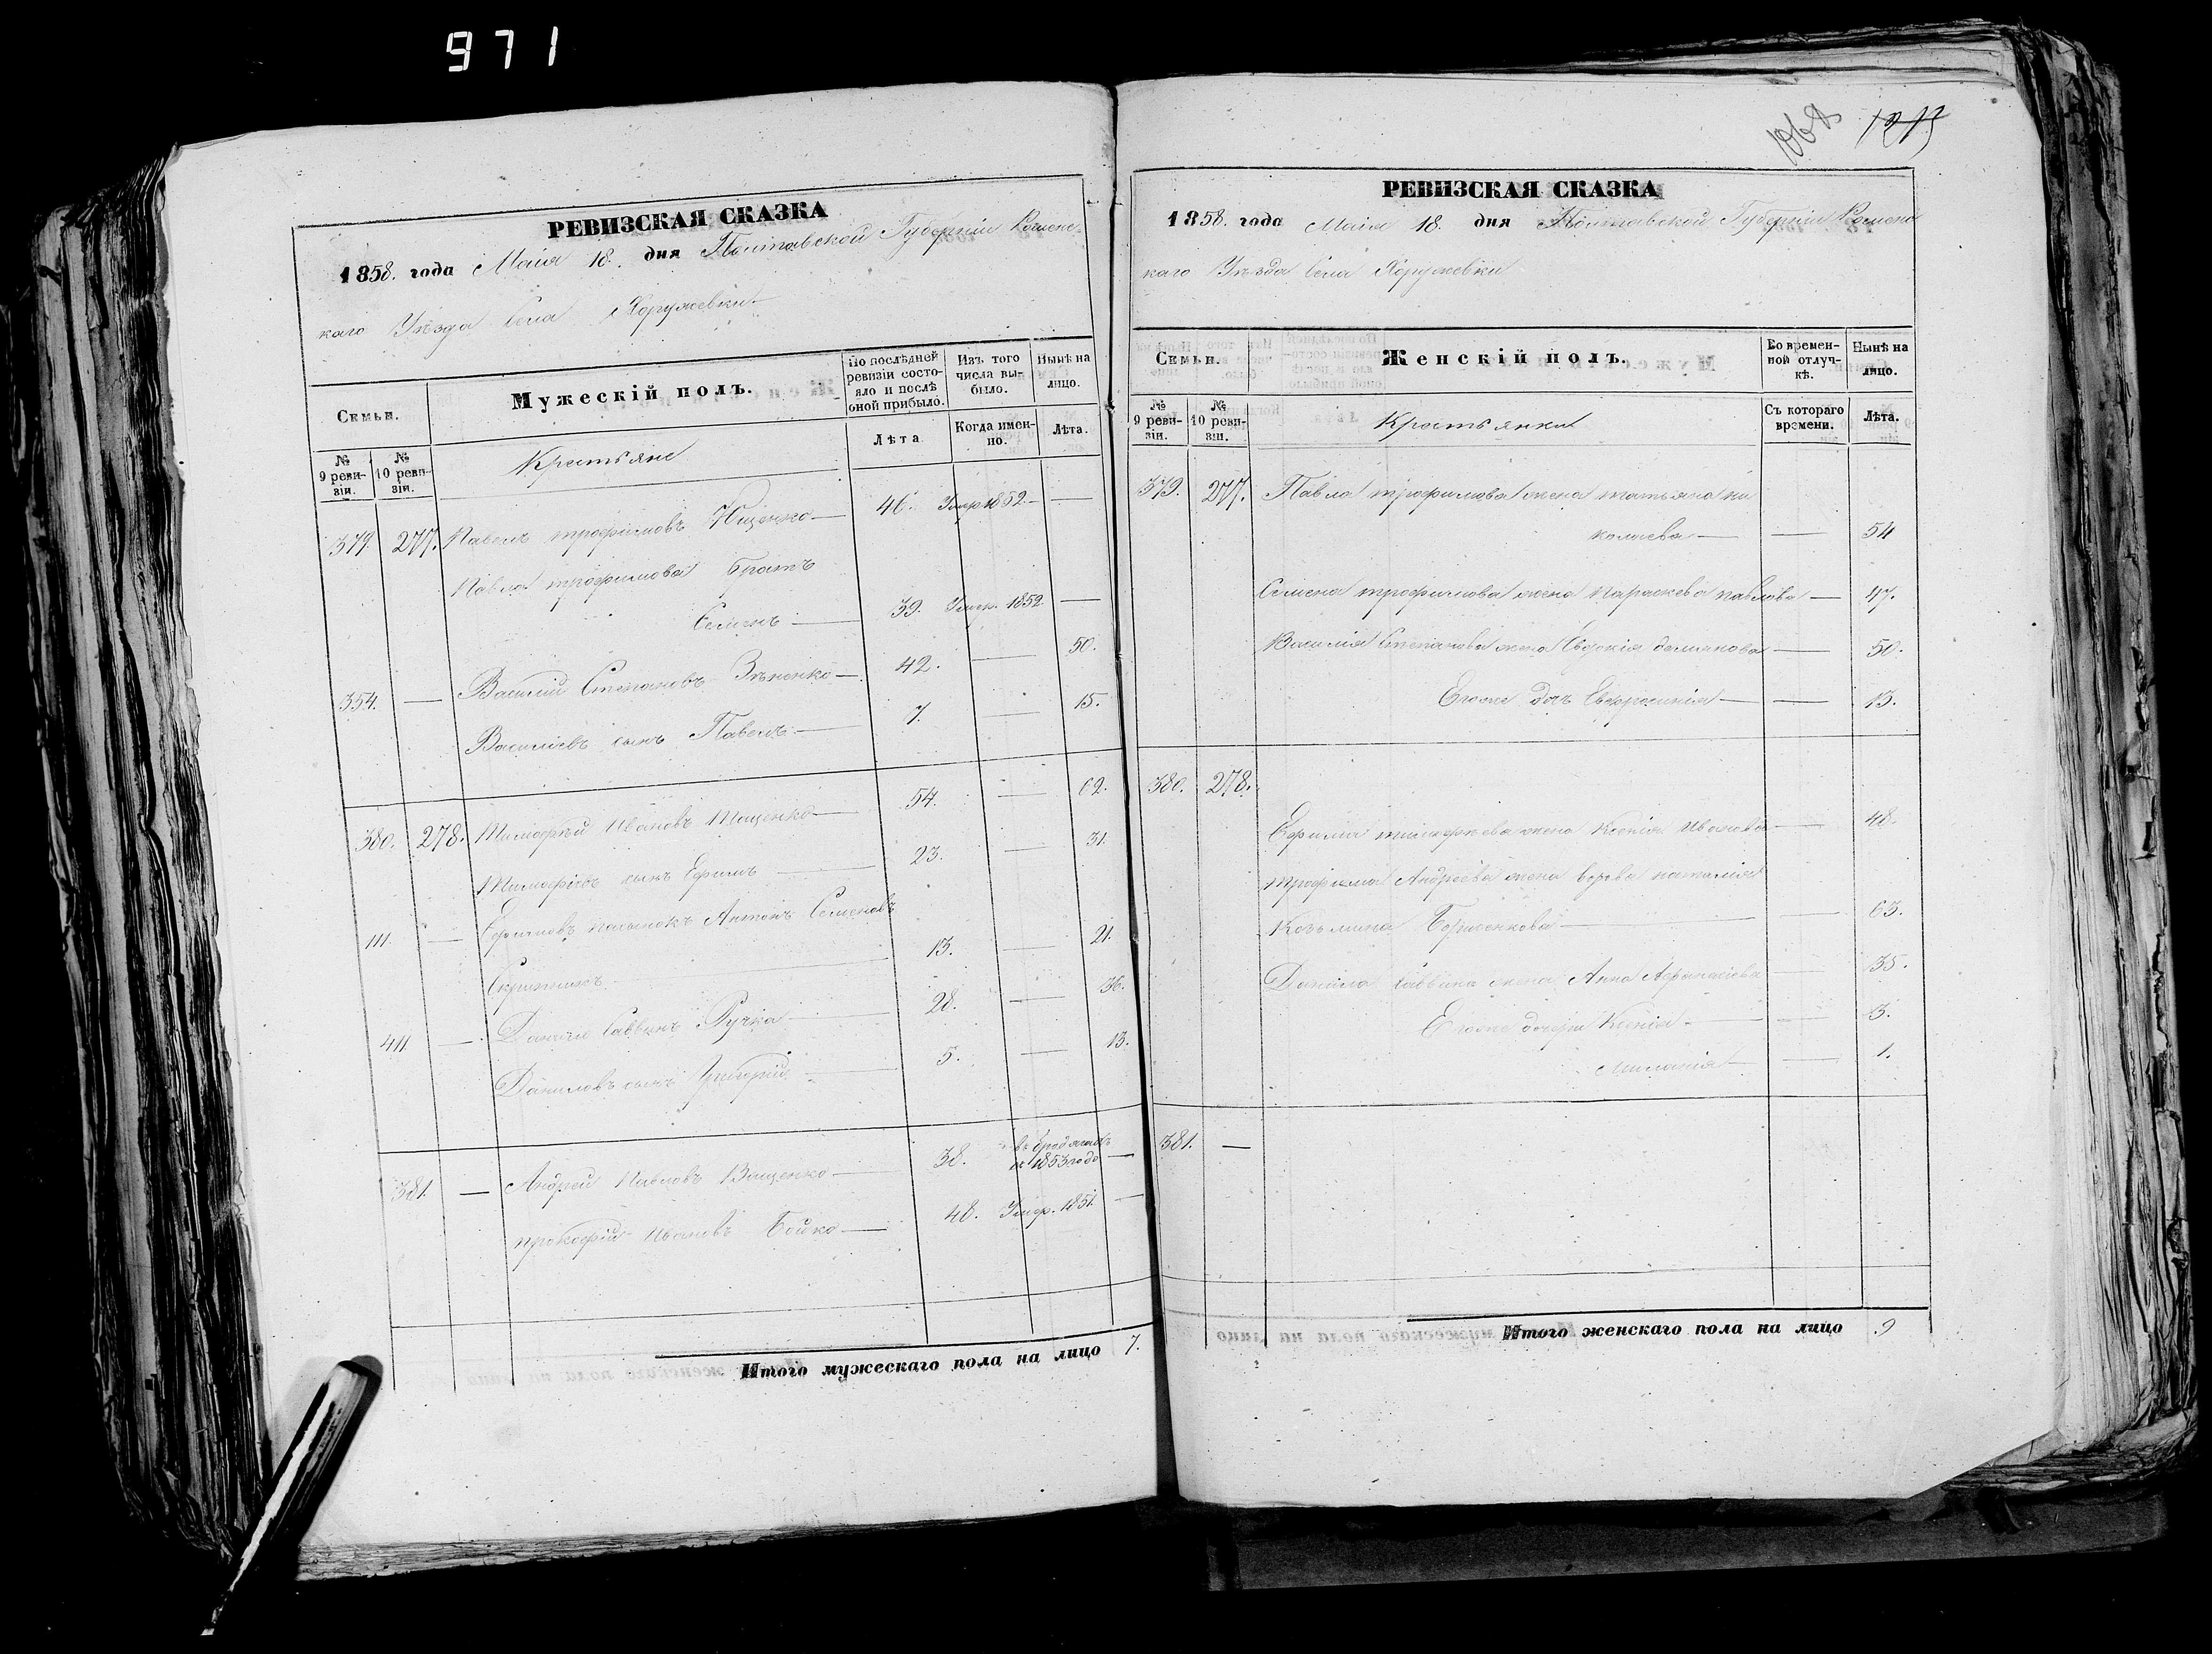 971
1068
РЕВИЗСКАЯ СКАЗКА
1858. года Маія 18. дня Полтавской Губерніи Роменс-
каго Уѣзда Села Хоружевки
Семьи.
Мужескій полъ.
По послѣдней ревизіи состояло и послѣ оной прибыло.
Изъ того числа выбыло.
Нынѣ на лицо.
№ 9 ревизіи.
№ 10 ревизіи.
Крестьяне
Лѣта
Когда именно.
Лѣта.
379. 277. Павелъ трофимовъ Ющенко — 46. Умер. 1852. —
Павла трофимова братъ
Семенъ — 39. Умер. 1852. —
354. — Василій Степановъ Зѣненко — 42. — 50.
Василіевъ сынъ Павелъ — 7. — 15.
380. 278. Тимофѣй Ивановъ Тищенко — 54. — 62.
Тимофѣевъ сынъ Ефимъ — 23. — 31.
111. — Ефимовъ Антонъ Семеновъ
13. — 21.
411 — Данило Саввинъ Ручка — 28. — 36.
Даниловъ сынъ Григорій — 5. — 13.
381. — Андрей Павловъ Ващенко — 38. въ бродягахъ съ 1853 года —
прокофій Ивановъ Бойко — 48. Умер. 1851. —
Итого мужескаго пола на лицо 7.
РЕВИЗСКАЯ СКАЗКА
1858. года Маія 18. дня Полтавской Губерніи Роменс-
каго Уѣзда Села Хоружевки
Семьи.
Женскій полъ.
Во временной отлучкѣ.
Нынѣ на лицо.
№ 9 ревизіи.
№ 10 ревизіи.
Крестьянки
Съ котораго времени.
Лѣта.
379. 277. Павла трофимова жена татьяна ни
колаева — — 54
Семена трофимова жена Параскева павлова — 47.
Василія Степанова жена Евдокія демянова — 50.
Егоже дочь Евфросинія — — 13.
380. 278.
Ефима тимофѣева жена Ксенія Иванова — 48.
трофима Андреева жена вдова наталія
Козьмина — — 63.
Данила Саввина жена Анна Афанасіева — 35.
Егоже дочери Ксенія — — 3.
Миланія — — 1.
381. —
Итого женскаго пола на лицо 9